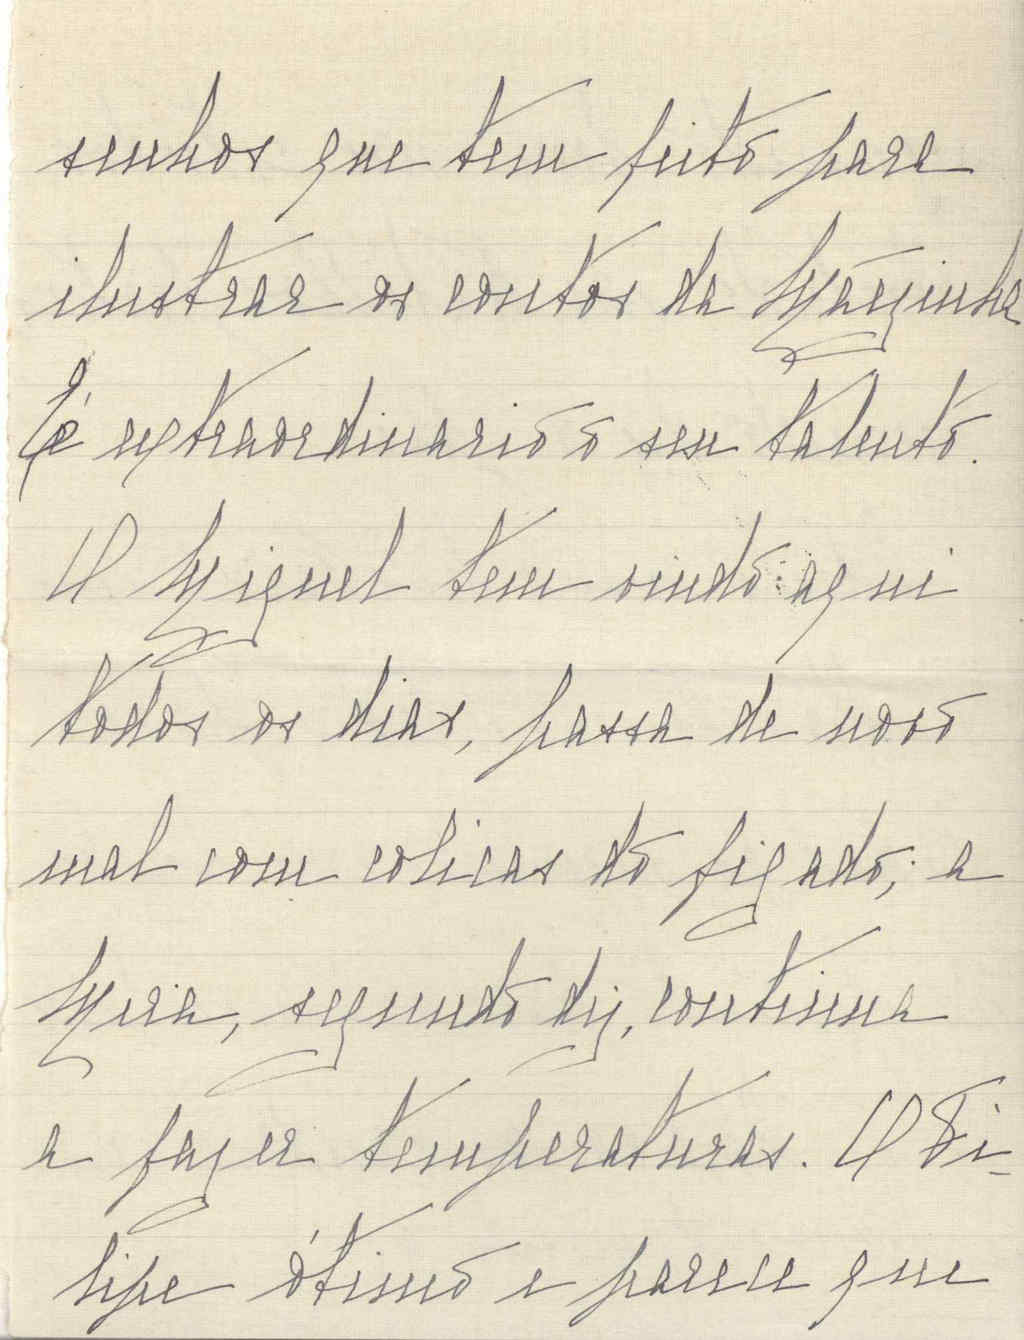 senhos que tem feito para
ilustrar os contos da Mãezinha
É extraordinario o seu talento.
O Miguel tem vindo aqui
todos os dias, passa de novo
mal com colicas do figado; a
segundo diz, continua
a fazer temperaturas. O Fi-
lipe ótimo e parece que